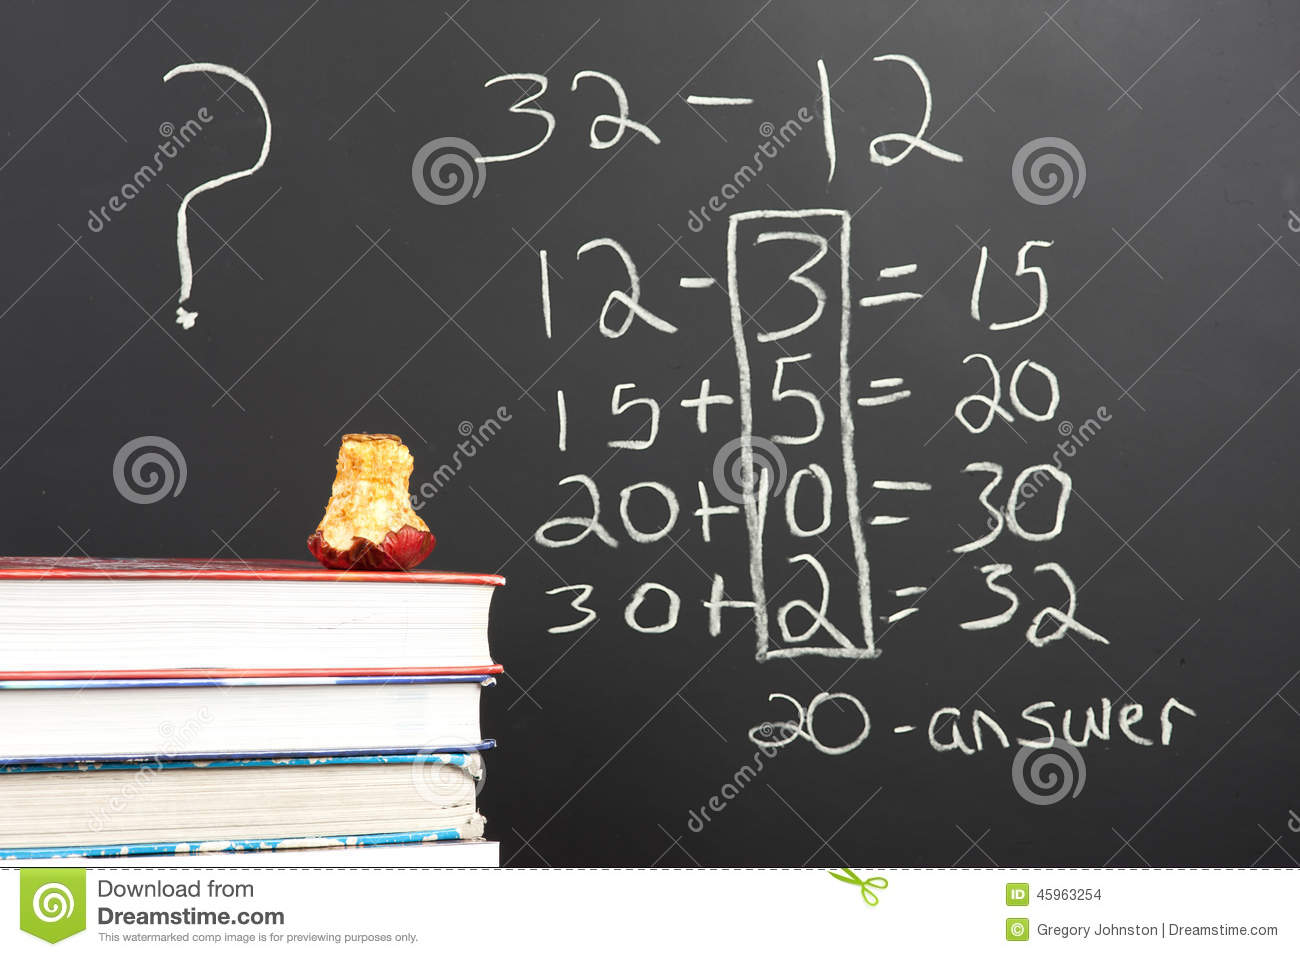 ?
32 - 12
12 - 3 = 15
15 + 5 = 20
20 + 10 = 30
30 + 2 = 32
20 - answer
dreamstime
Download from
Dreamstime.com
This watermarked comp image is for previewing purposes only.
ID 45963254
© Gregory Johnston | Dreamstime.com